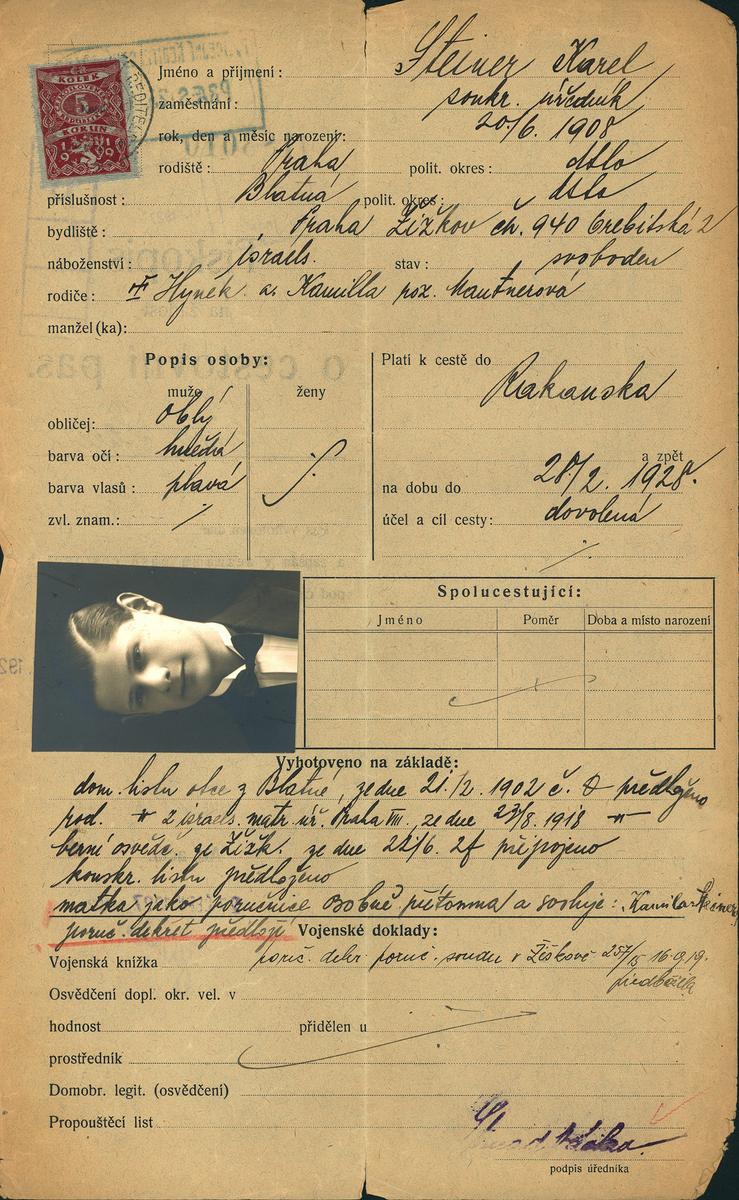 ČR
KOLEK
5
KORUN
1919
Jméno a příjmení: Steiner Karel
zaměstnání: soukr. úředník
rok, den a měsíc narození: 20/6. 1908
rodiště: Praha polit. okres: dtto
příslušnost: Blatná polit. okres: dtto
bydliště: Praha Žižkov čh. 940 Orebitská 2
náboženství: israels. stav: svoboden
rodiče: Hynek a Kamilla roz. Mautnerová
manžel(ka):
Popis osoby:
muže ženy
obličej: oblý
barva očí: hnědá
barva vlasů: plavá
zvl. znam.: /
Platí k cestě do
Rakouska
a zpět
na dobu do 28/2. 1928.
účel a cíl cesty: dovolená
Spolucestující:
Jméno Poměr Doba a místo narození
Vyhotoveno na základě:
dom. listu otce z Blatné, ze dne 21./2. 1902 č. předloženo
rod. " z israels. matr. úř. Praha VIII., ze dne 27/8. 1918 "
berní osvědč. ze Žižk. ze dne 22/6. 27 připojeno
konskr. listu předloženo
matka jako poručnice osobně přítomna a svoluje: Kamila Steiner
poruč. dekret předloží
Vojenské doklady:
poruč. dekr. poruč. soudu v Žižkově 257/15 16.9.19.
Vojenská knížka
Osvědčení dopl. okr. vel. v
hodnost přidělen u
prostředník
Domobr. legit. (osvědčení)
Propouštěcí list
podpis úředníka